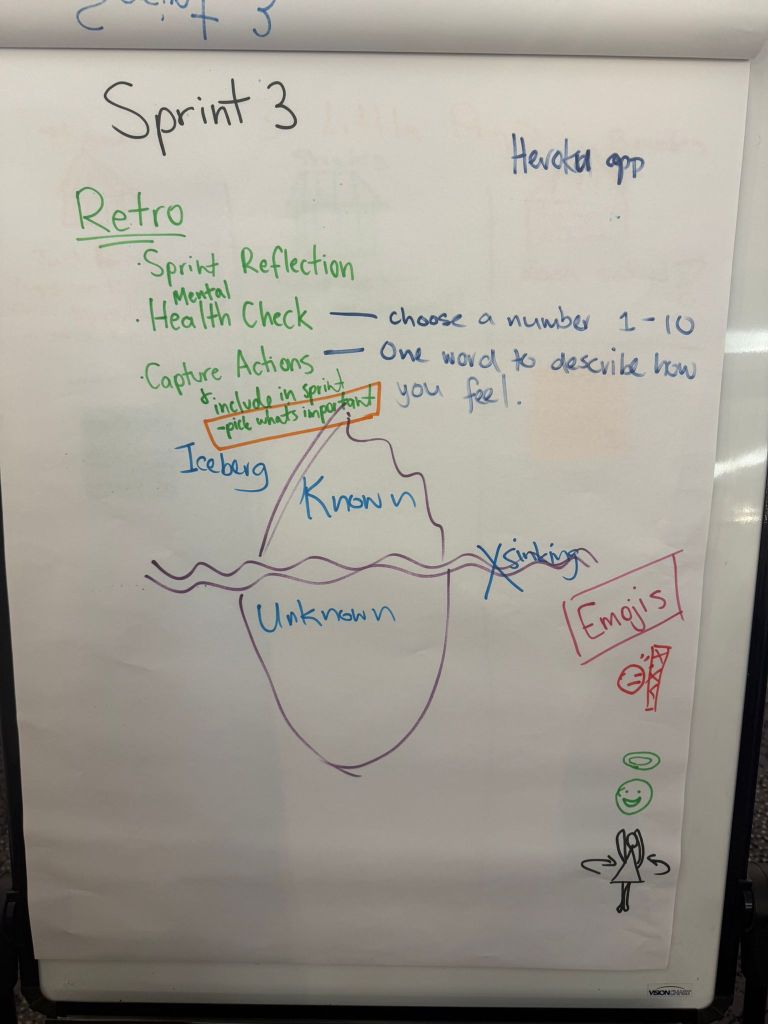 Sprint 3
Sprint 3
Heroku app
Retro
· Sprint Reflection
Mental
· Health Check — choose a number 1-10
· Capture Actions — One word to describe how
you feel.
& include in sprint
- pick whats important
Iceberg
Known
sinking
Unknown
Emojis
VISIONCHART